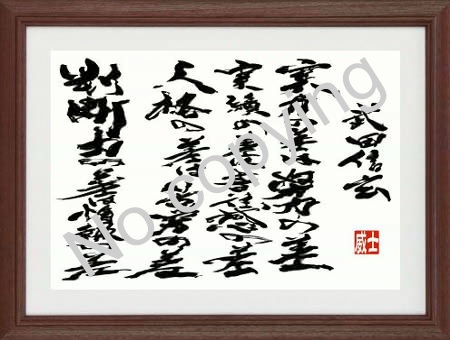 武田信玄
実力の差は努力の差
実績の差は責任感の差
人格の差は苦労の差
判断力の差は情報の差
士威
No copying